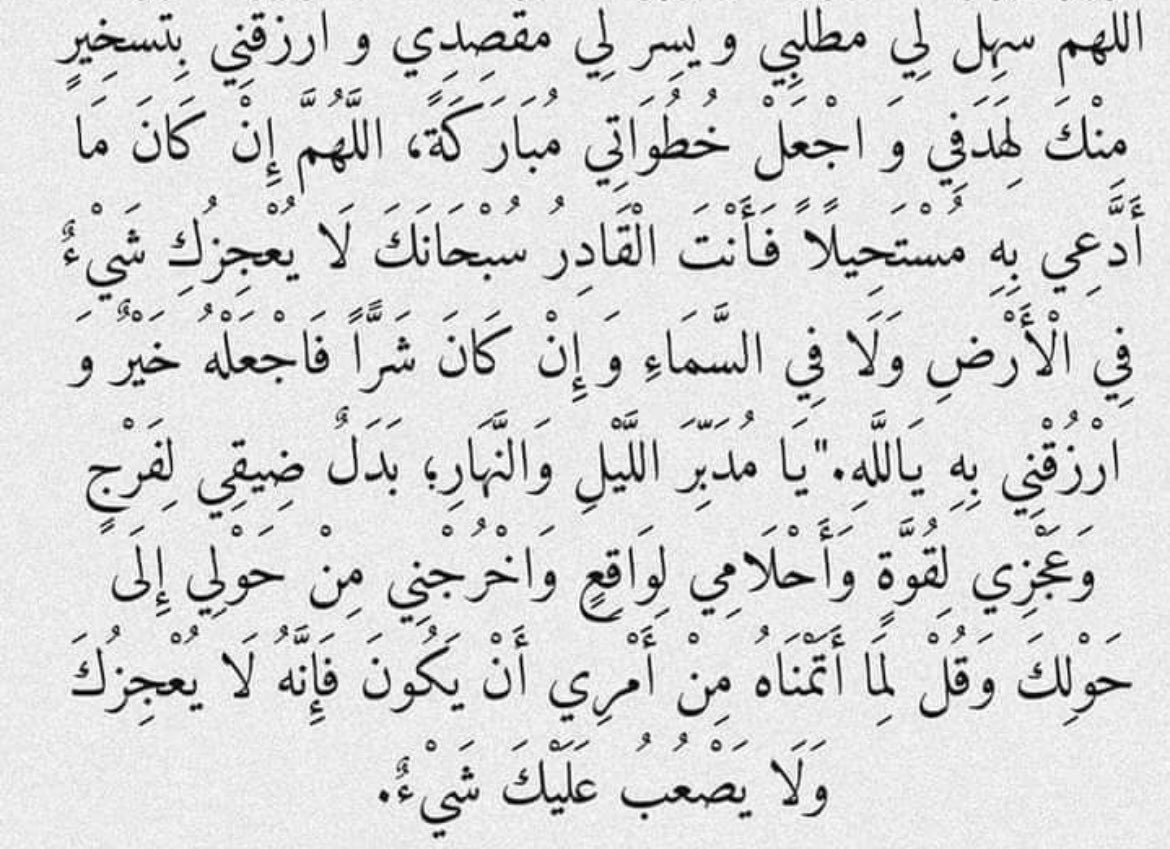 اللهم سهِل لِي مطلبِي و يسِر لِي مقصِدِي و ارزقنِي بِتسخِيرٍ
مِنْكَ لِهَدَفِي وَ اجْعَلْ خُطُوَاتِي مُبَارَكَةً، اللَّهُمَّ إِنْ كَانَ مَا
أَدَّعِي بِهِ مُسْتَحِيلًاً فَأَنْتَ الْقَادِرُ سُبْحَانَكَ لَا يُعْجِزُكِ شَيْءٌ
فِي الْأَرْضِ وَلَا فِي السَّمَاءِ وَ إِنْ كَانَ شَرَّاً فَاجْعَلْهُ خَيْرٌ وَ
ارْزُقْنِي بِهِ يَاللَّهِ."يَا مُدَبِّرَ اللَّيْلِ وَالنَّهَارِ؛ بَدَلٌ ضِيقِي لِفَرْجٍ
وَعَجْزِي لِقُوَّةٍ وَأَحْلَامِي لِوَاقِعٍ وَاخْرُجْنِي مِنْ حَوْلِي إِلَى
حَوْلِكَ وَقُلْ لِمَا أَتَمْنَاهُ مِنْ أَمْرِي أَنْ يَكُونَ فَإِنَّهُ لَا يُعْجِزُكَ
وَلَا يَصْعُبُ عَلَيْكَ شَيْءٌ.